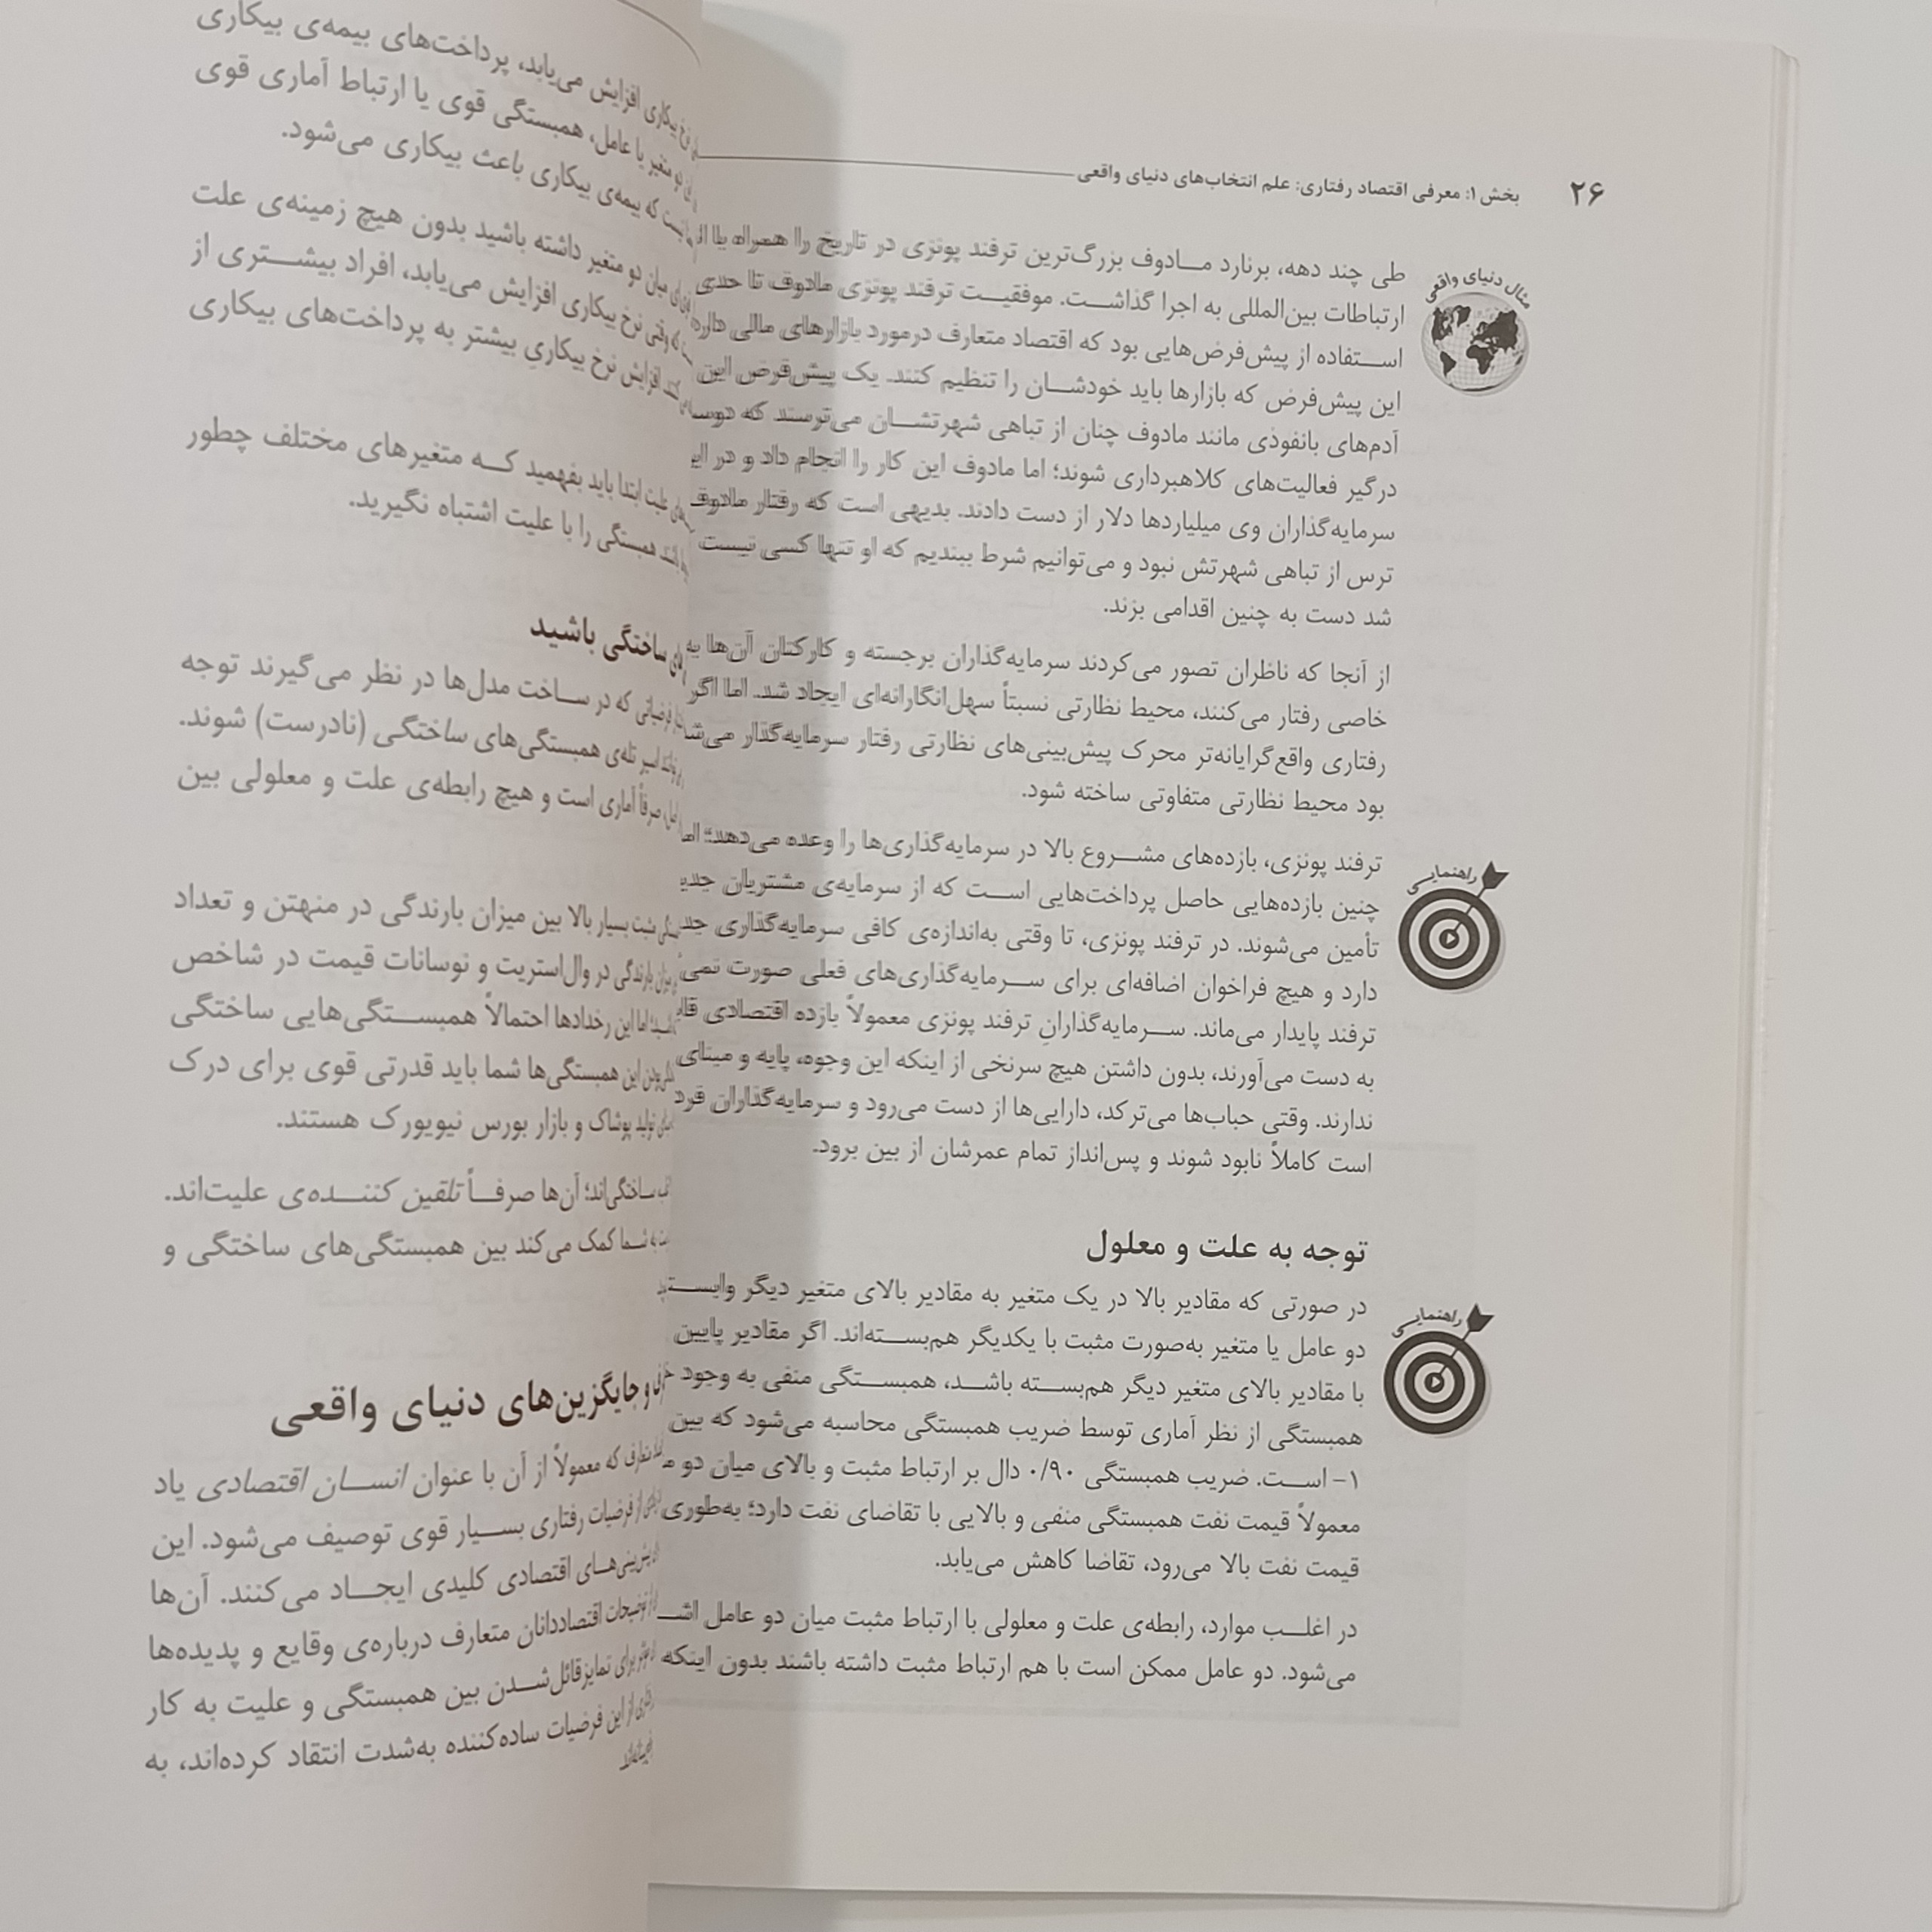 ۲۶
بخش ۱: معرفی اقتصاد رفتاری: علم انتخاب‌های دنیای واقعی
مثال دنیای واقعی
طی چند دهه، برنارد مادوف بزرگ‌ترین ترفند پونزی در تاریخ را همراه با
ارتباطات بین‌المللی به اجرا گذاشت. موفقیت ترفند پونزی مادوف تا حدی
استفاده از پیش‌فرض‌هایی بود که اقتصاد متعارف درمورد بازارهای مالی دارد
این پیش‌فرض که بازارها باید خودشان را تنظیم کنند. یک پیش‌فرض این
آدم‌های بانفوذی مانند مادوف چنان از تباهی شهرتشان می‌ترسند که
درگیر فعالیت‌های کلاهبرداری شوند؛ اما مادوف این کار را انجام داد و در
سرمایه‌گذاران وی میلیاردها دلار از دست دادند. بدیهی است که رفتار مادوف
ترس از تباهی شهرتش نبود و می‌توانیم شرط ببندیم که او تنها کسی نیست
شد دست به چنین اقدامی بزند.
از آنجا که ناظران تصور می‌کردند سرمایه‌گذاران برجسته و کارکنان آن‌ها به
خاصی رفتار می‌کنند، محیط نظارتی نسبتاً سهل‌انگارانه‌ای ایجاد شد. اما اگر
رفتاری واقع‌گرایانه‌تر محرک پیش‌بینی‌های نظارتی رفتار سرمایه‌گذار
بود محیط نظارتی متفاوتی ساخته شود.
راهنمایی
ترفند پونزی، بازده‌های مشروع بالا در سرمایه‌گذاری‌ها را وعده می‌دهد؛ اما
چنین بازده‌هایی حاصل پرداخت‌هایی است که از سرمایه‌ی مشتریان
تأمین می‌شوند. در ترفند پونزی، تا وقتی به‌اندازه‌ی کافی سرمایه‌گذاری
دارد و هیچ فراخوان اضافه‌ای برای سرمایه‌گذاری‌های فعلی صورت
ترفند پایدار می‌ماند. سرمایه‌گذارانِ ترفند پونزی معمولاً بازده اقتصادی
به دست می‌آورند، بدون داشتن هیچ سرنخی از اینکه این وجوه، پایه و مبنای
ندارند. وقتی حباب‌ها می‌ترکد، دارایی‌ها از دست می‌رود و سرمایه‌گذاران
است کاملاً نابود شوند و پس‌انداز تمام عمرشان از بین برود.
توجه به علت و معلول
راهنمایی
در صورتی که مقادیر بالا در یک متغیر به مقادیر بالای متغیر دیگر
دو عامل یا متغیر به‌صورت مثبت با یکدیگر هم‌بسته‌اند. اگر مقادیر پایین
با مقادیر بالای متغیر دیگر هم‌بسته باشد، همبستگی منفی به وجود
همبستگی از نظر آماری توسط ضریب همبستگی محاسبه می‌شود که بین
۱- است. ضریب همبستگی ۰/۹۰ دال بر ارتباط مثبت و بالای میان دو
معمولاً قیمت نفت همبستگی منفی و بالایی با تقاضای نفت دارد؛ به‌طوری
قیمت نفت بالا می‌رود، تقاضا کاهش می‌یابد.
در اغلب موارد، رابطه‌ی علت و معلولی با ارتباط مثبت میان دو عامل
می‌شود. دو عامل ممکن است با هم ارتباط مثبت داشته باشند بدون اینکه
نرخ بیکاری افزایش می‌یابد، پرداخت‌های بیمه‌ی بیکاری
دو متغیر یا عامل، همبستگی قوی یا ارتباط آماری قوی
که بیمه‌ی بیکاری باعث بیکاری می‌شود.
میان دو متغیر داشته باشید بدون هیچ زمینه‌ی علت
که وقتی نرخ بیکاری افزایش می‌یابد، افراد بیشتری از
افزایش نرخ بیکاریِ بیشتر به پرداخت‌های بیکاری
علیت ابتدا باید بفهمید که متغیرهای مختلف چطور
همبستگی را با علیت اشتباه نگیرید.
ساختگی باشید
که در ساخت مدل‌ها در نظر می‌گیرند توجه
اسیر تله‌ی همبستگی‌های ساختگی (نادرست) شوند.
صرفاً آماری است و هیچ رابطه‌ی علت و معلولی بین
مثبت بسیار بالا بین میزان بارندگی در منهتن و تعداد
میزان بارندگی در وال‌استریت و نوسانات قیمت در شاخص
اما این رخدادها احتمالاً همبستگی‌هایی ساختگی
بودن این همبستگی‌ها شما باید قدرتی قوی برای درک
تولید پوشاک و بازار بورس نیویورک هستند.
ساختگی‌اند؛ آن‌ها صرفاً تلقین کننده‌ی علیت‌اند.
به شما کمک می‌کند بین همبستگی‌های ساختگی و
و جایگزین‌های دنیای واقعی
متعارف که معمولاً از آن با عنوان انسان اقتصادی یاد
از فرضیات رفتاری بسیار قوی توصیف می‌شود. این
پیش‌بینی‌های اقتصادی کلیدی ایجاد می‌کنند. آن‌ها
توضیحات اقتصاددانان متعارف درباره‌ی وقایع و پدیده‌ها
برای تمایزقائل‌شدن بین همبستگی و علیت به کار
از این فرضیات ساده‌کننده به‌شدت انتقاد کرده‌اند، به